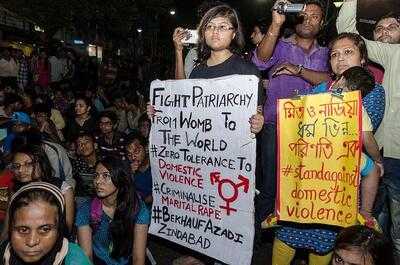 FIGHT PATRIARCHY
FROM WOMB TO
THE WORLD
#ZERO TOLERANCE TO
DOMESTIC VIOLENCE
#CRIMINALISE
MARITAL RAPE
#BEKHAUF AZADI
ZINDABAD
মিতা ও নাজিয়া
ধর্ম ভিন্ন...
পরিণতি এক
#standagainst
domestic
violence